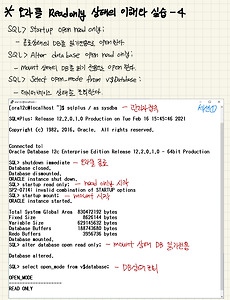 ※ 오라클 Read only 상태의 이해와 실습 - 4
SQL> Startup open read only;
- 종료상태의 DB를 읽기전용으로 open한다.
SQL> Alter database open read only;
- mount 상태의 DB를 읽기 전용으로 open 한다.
SQL> Select open_mode from v$database;
- 데이터베이스 상태를 조회한다.
[oracle12c@host01 ~]$ sqlplus / as sysdba - 관리자접속
SQL*Plus: Release 12.2.0.1.0 Production on Tue Feb 16 2021
Copyright (c) 1982, 2016, Oracle. All rights reserved.
Connected to:
Oracle Database 12c Enterprise Edition Release 12.2.0.1.0 - 64bit Production
SQL> shutdown immediate - 오라클 종료
Database closed.
Database dismounted.
ORACLE instance shut down.
SQL> startup read only; - read only 시작
SP2-0714: invalid combination of STARTUP options
SQL> startup mount; - mount 시작
ORACLE instance started.
Total System Global Area 830472192 bytes
Fixed Size 8626144 bytes
Variable Size 629145632 bytes
Database Buffers 188743680 bytes
Redo Buffers 3956736 bytes
Database mounted.
SQL> alter database open read only; - mount 상태 DB 읽기전용
Database altered.
SQL> select open_mode from v$database; - DB상태조회
OPEN_MODE
--------------------
READ ONLY